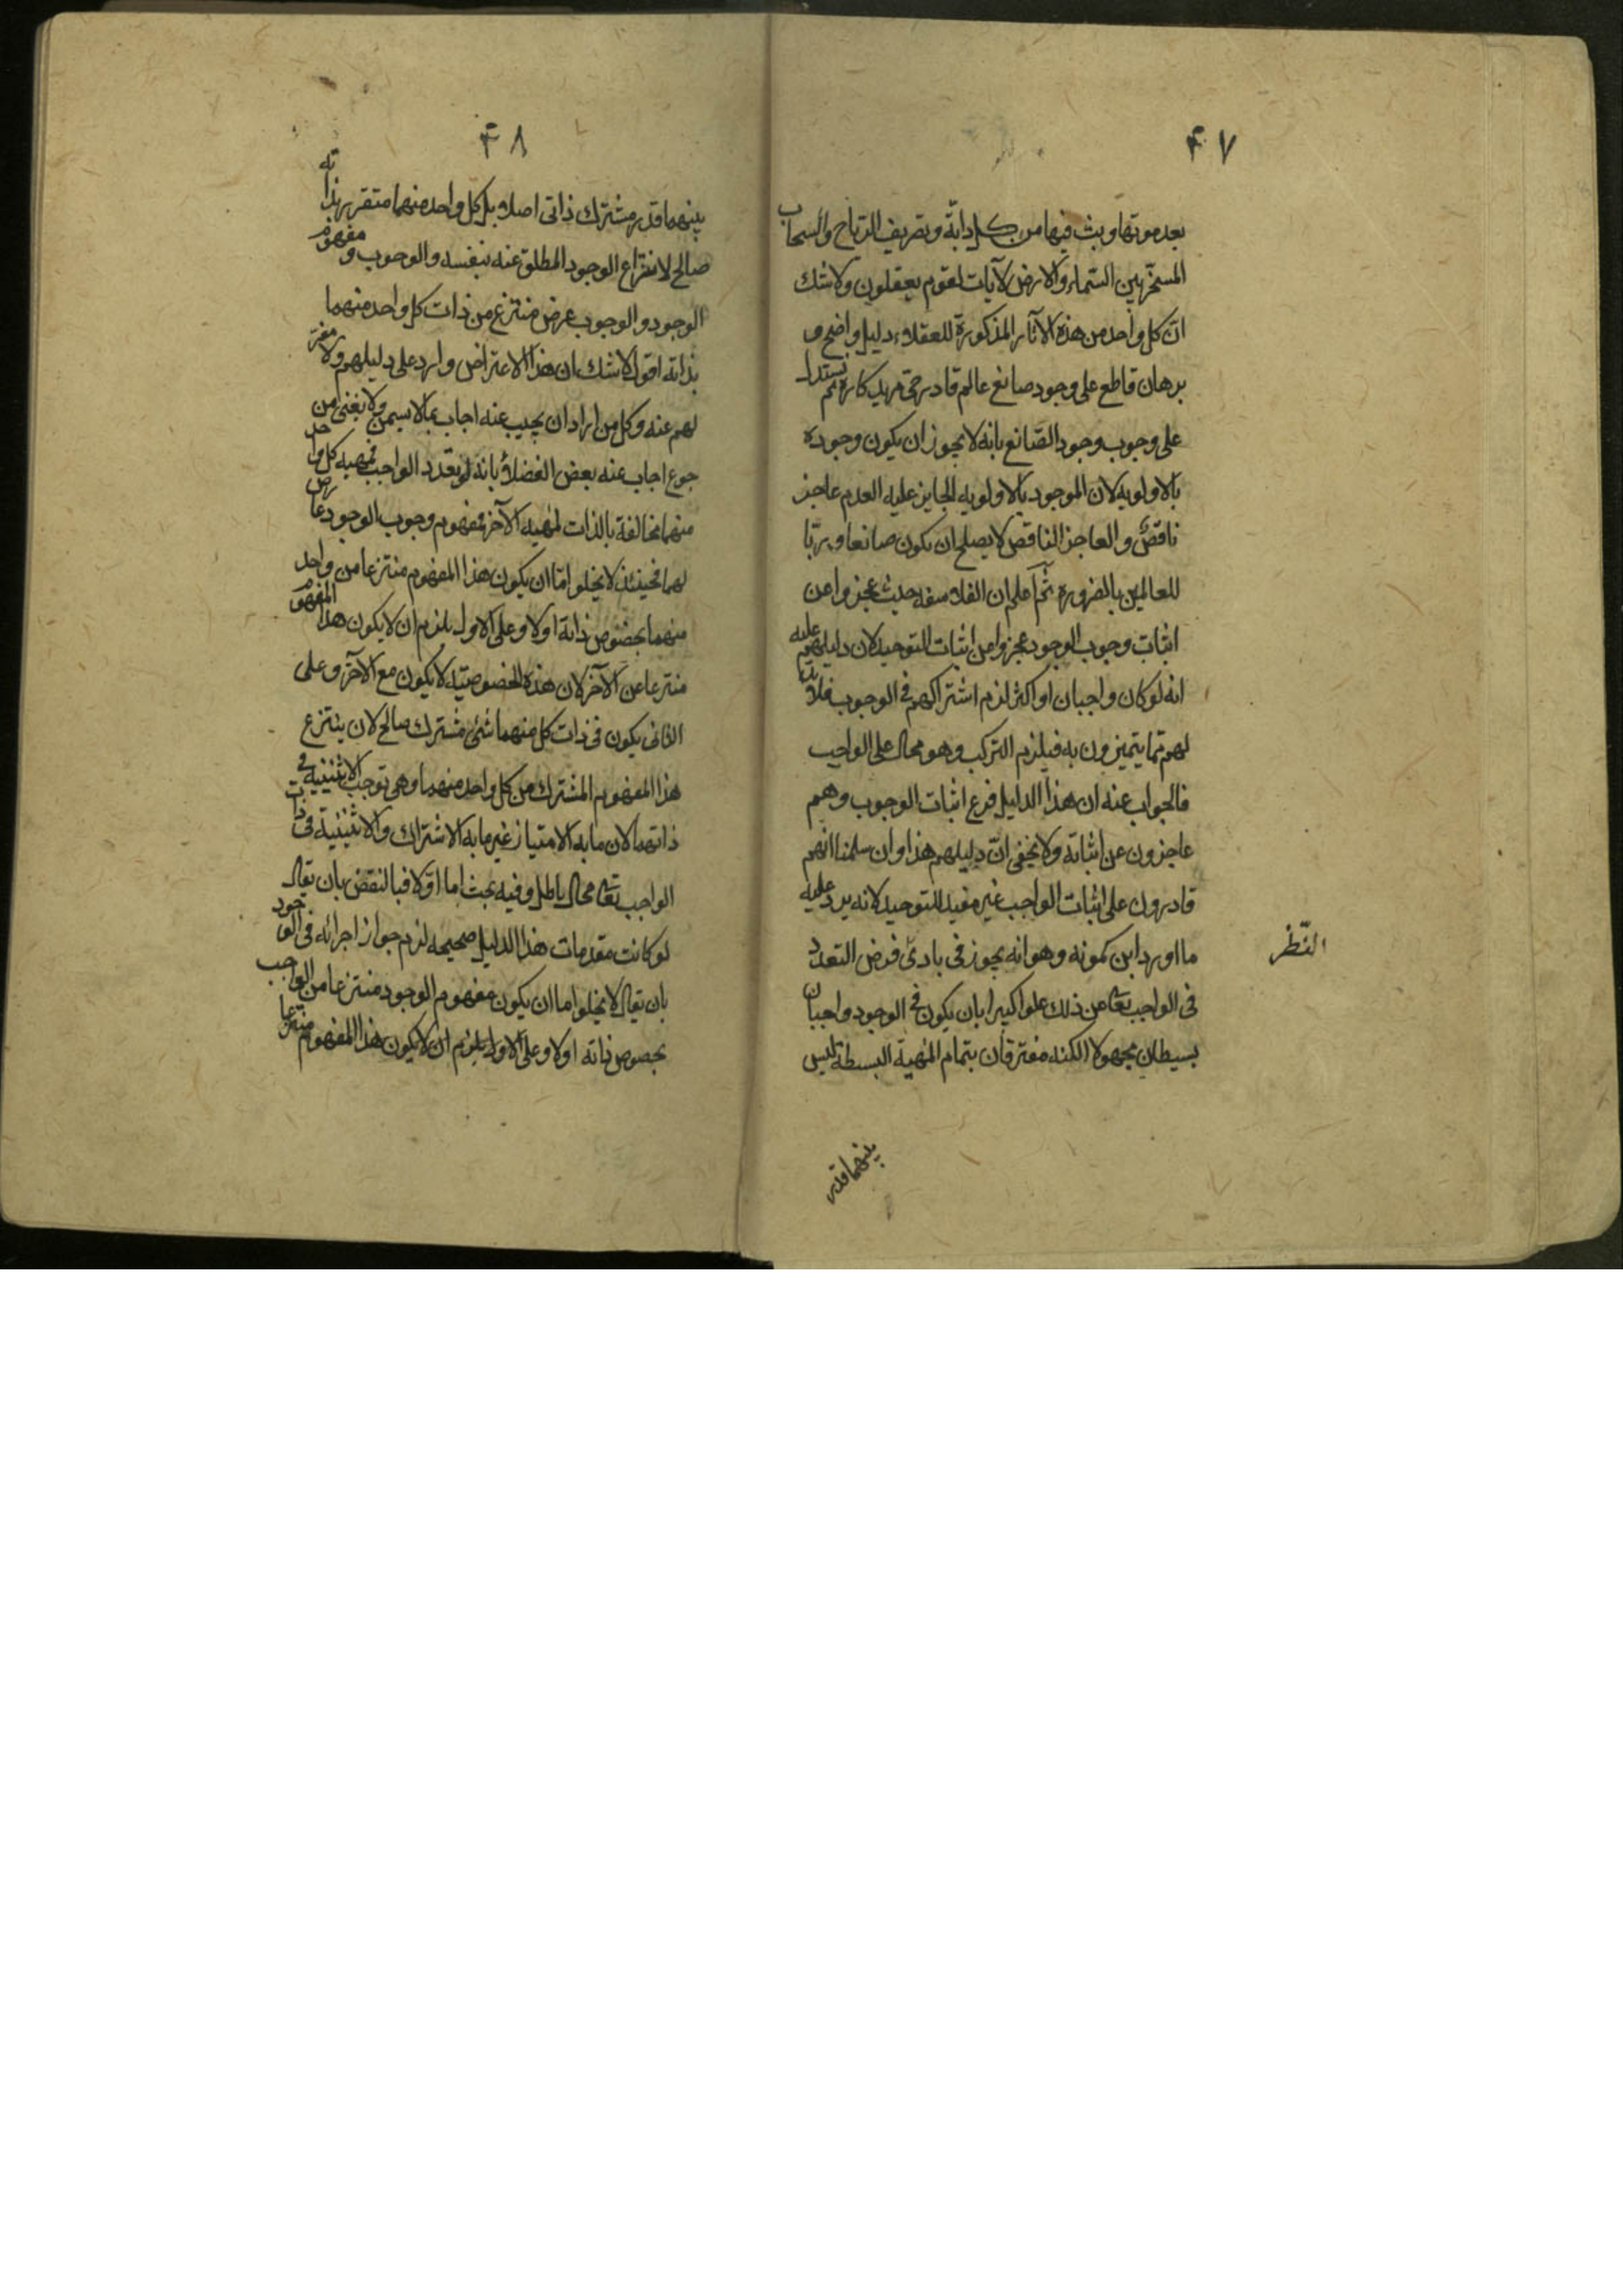 ۴۷
بعد موتها وبث فيها من كل دابّة وتصريف الرياح والسحاب
المسخّر بين السّماء والارض لآيات لقوم يعقلون ولا شك
انّ كل واحد من هذه الآثار المذكورة للعقلاء دليل واضح و
برهان قاطع على وجود صانع عالم قادر حىّ مريد كاره ثم نستدل
على وجوب وجود الصّانع بانه لا يجوز ان يكون وجوده
بالاولويه لان الموجود بالاولويه الجايز عليه العدم عاجز
ناقص والعاجز الناقص لا يصلح ان يكون صانعا وربّا
للعالمين بالضرورة ثمّ اعلم ان الفلاسفه حيث عجزوا عن
اثبات وجوب الوجود عجزوا عن اثبات التوحيد لان دليلهم عليه
انه لو كان واجبان او اكثر لزم اشتراكهم فى الوجوب فلا بد
لهم مما يتميزون به فيلزم التركب وهو محال على الواجب
فالجواب عنه ان هذا الدليل فرع اثبات الوجوب وهم
عاجزون عن اثباته ولا يخفى انّ دليلهم هذا وان سلمنا انهم
قادرون على اثبات الواجب غير مفيد للتوحيد لانه يرد عليه
ما اورد ابن كمونه وهو انه يجوز فى بادى فرض التعدد
النّظر
فى الواجب تعالى عن ذلك علوا كبيرا بان يكون فى الوجود واجبان
بسيطان مجهولا الكنه مفترقان بتمام المهية البسيطة ليس
بينهما قدر
۴۸
بينهما قدر مشترك ذاتى اصلا بل كل واحد منهما متقرر بذاته
صالح لانتزاع الوجود المطلق عنه بنفسه والوجوب ومفهوم
الوجود والوجوب عرض منتزع من ذات كل واحد منهما
بذاته اقول لا شك ان هذا الاعتراض وارد على دليلهم ولا مفرّ
لهم عنه وكل من اراد ان يجيب عنه اجاب بما لا يسمن ولا يغنى من
جوع اجاب عنه بعض الفضلاء بانه لو تعدد الواجب فمهيه كل واحد
منهما مخالفة بالذات لمهيه الآخر فمفهوم وجوب الوجود عارض
لهما فحينئذ لا يخلو اما ان يكون هذا المفهوم منتزعا من واحد
منهما بخصوص ذاته اولا وعلى الاول يلزم ان لا يكون هذا المفهوم
منتزعا عن الآخر لان هذه الخصوصيّة لا يكون مع الآخر وعلى
الثانى يكون فى ذات كل منهما شئ مشترك صالح لان ينتزع
هذا المفهوم المشترك من كل واحد منهما وهى توجب الاثنينيه فى
ذاتهما لان ما به الامتياز غير ما به الاشتراك والاثنينية فى ذات
الواجب تعالى محال باطل وفيه بحث اما اوّلا فبالنقض بان يقال
لو كانت مقدمات هذا الدليل صحيحه لزم جواز اجرائه فى الوجود
بان يقال لا يخلو اما ان يكون مفهوم الوجود منتزعا من الواجب
بخصوص ذاته اولا وعلى الاول يلزم ان لا يكون هذا المفهوم منتزعا